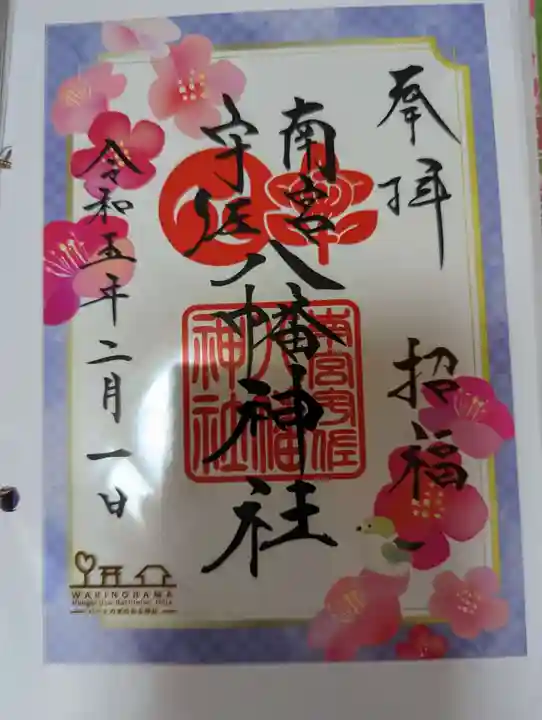 奉拝
招福
南宮
宇佐
八幡神社
南宮宇佐
八幡
神社
令和五年二月一日
WAKINOHAMA